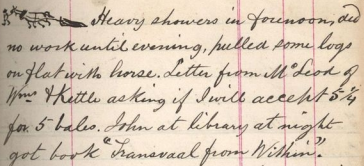 Heavy showers in forenoon, did
no work until evening, pulled some logs
on flat with horse. Letter from McLeod of
Wms & Kettle asking if I will accept 5¼
for 5 bales. John at library at night
got book "Transvaal from Within"